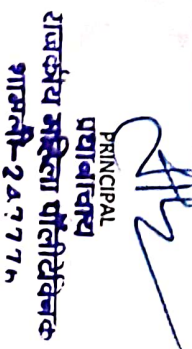 PRINCIPAL
प्रधानाचार्य
राजकीय महिला पॉलीटेक्निक
शामली-247776